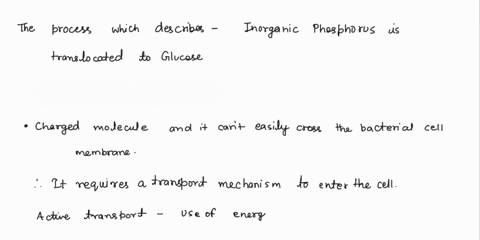 The process which describes - Inorganic Phosphorus is
translocated to Glucose
• Charged molecule and it can't easily cross the bacterial cell
membrane.
∴ It requires a transport mechanism to enter the cell.
Active transport - use of energ